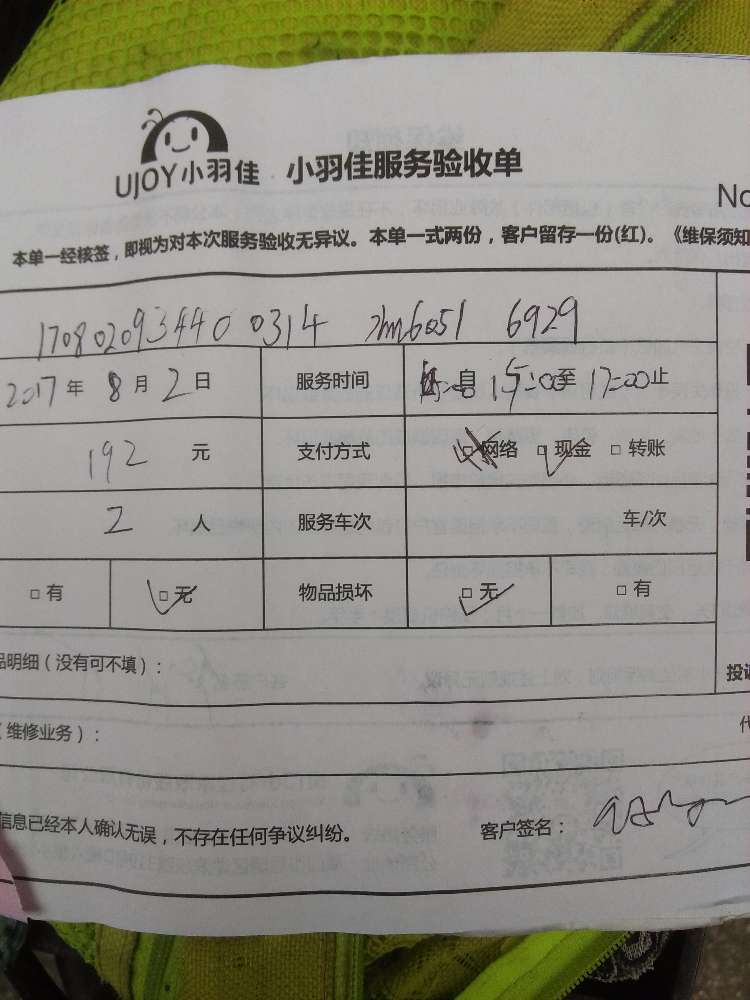 UJOY小羽佳 小羽佳服务验收单
No
本单一经核签，即视为对本次服务验收无异议。本单一式两份，客户留存一份(红)。《维保须知
170802093440 0314 6051 6929
2017年 8月 2日 服务时间 自 15:00至 17:00止
192 元 支付方式 □网络 □现金 □转账
2 人 服务车次 车/次
□有 □无 物品损坏 □无 □有
品明细（没有可不填）：
投诉
（维修业务）：
代
信息已经本人确认无误，不存在任何争议纠纷。 客户签名：